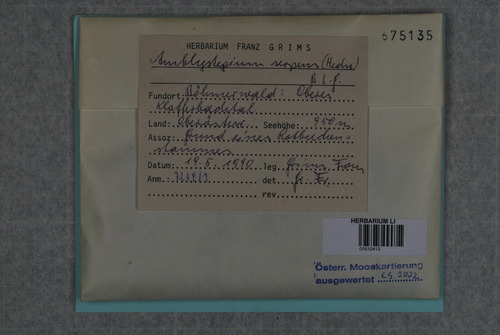 675135
HERBARIUM FRANZ GRIMS
Amblystegium serpens (Hedw.)
B.S.G.
Fundort: Böhmerwald: Oberes
Klafferbachtal
Land: Oberösterr. Seehöhe: 950 m
Assoz: Grund eines Rotbuchen-
stammes
Datum: 19.5.1990 leg. Grims Franz
Anm.: det. Gr. Fr.
rev.
HERBARIUM LI
01610413
Österr. Mooskartierung
ausgewertet